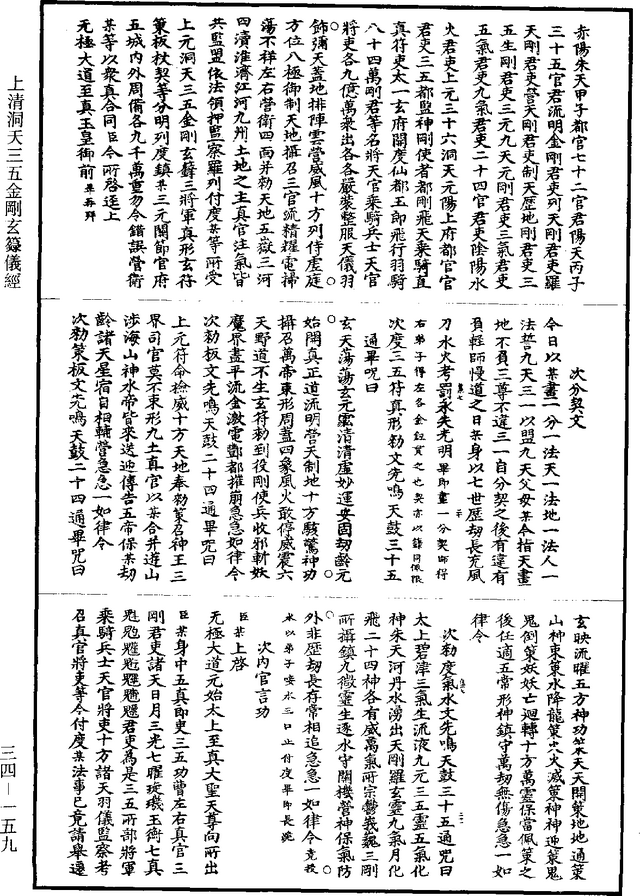 赤陽朱天甲子都官七十二官君陽天丙子
三十五官君流明金剛君吏列天剛君吏羅
天剛君吏營天剛君吏制天歷地剛君吏三
五生剛君吏三元九天元剛君吏三氣君吏
五氣君吏九氣君吏二十四官君吏陰陽水
火君吏上元三十六洞天元陽上府都官官
君吏三五都監神剛使者都剛飛天乘騎直
真符吏太一玄府開度仙都玉郎飛行羽騎
八十四萬剛君等名將天官乘騎兵士天官
將吏各九億萬衆出各各嚴裝整服天儀羽
飾彌天蓋地排陣雲營威風十方列侍虛庭
方位八極御制天地攝召三官流精耀電掃
蕩不祥左右營衛四面并勑天地五嶽三河
四瀆淮濟江河九州土地之主真官注氣皆
共監盟依法領押監察羅列付度某等所受
上元洞天三五金剛玄籙三將軍真形玄符
策板杖契等分明列度鎮某三元關節官府
五城內外周備各九千萬重勿令錯誤營衛
某等以衆真合同臣今所啓逕上
無極大道至真玉皇御前某再拜
次分契文
今日以某畫一分一法天一法地一法人一
法誓九天三一以盟九天父母某今指天畫
地不負三尊不違三一自分契之後有違有
負輕師慢道之日某身以七世歷劫長充風
刀火考罰永失光明畢即畫一分契師得
右弟子得左各金鈕質之也契亦以籙同佩服
次度三五符真形勑文先鳴天鼓三十五
通畢呪曰
玄天蕩蕩玄元雲清清虛妙運安固劫齡元
始開真正道流明營天制地十方駭驚神功
攝召萬帝束形周蓋四象風火敢停威震六
天野道不生玄符勑到役剛使兵收邪斬妖
魔界盡平流金激電酆都摧崩急急如律令
次勑板文先鳴天鼓二十四通畢呪曰
上元符命檢威十方天地奉勑策召神王三
界司官莫不束形九土真官以某合并遊山
涉海山神水帝皆來送迎傳告五帝保某劫
齡諸天星宿自相輔營急急一如律令
次勑策板文先鳴天鼓二十四通畢呪曰
玄映流曜五方神功策天天開策地地通策
山神束策水降龍策火火滅策神神迎策鬼
鬼倒策妖妖亡迴轉十方萬靈保當佩策之
後任適五常形神鎮守萬劫無傷急急一如
律令
次勑度氣水文先鳴天鼓三十五通呪曰
太上碧津三氣生流液九元三五靈五氣化
神朱天河丹水湧出天剛羅玄靈九氣月化
飛二十四神各有威萬氣所宗勳巍巍三剛
所攝鎮九微靈生逐水守關機營神保氣防
外非歷劫長存常相追急急一如律令
水以弟子嚥水三口止付度畢即長跪
次內官言功
臣某上啓
無極大道元始太上至真大聖天尊向所出
臣某身中五真即吏三五功曹左右真官三
剛君吏諸天日月三光七曜琁璣玉衡七真
君吏為是三五所部將軍
乘騎兵士天官將吏十方諸天羽儀監察考
召真官將吏等今付度某法事已竟請舉遷
上清洞天三五金剛玄籙儀經
三四－一五九